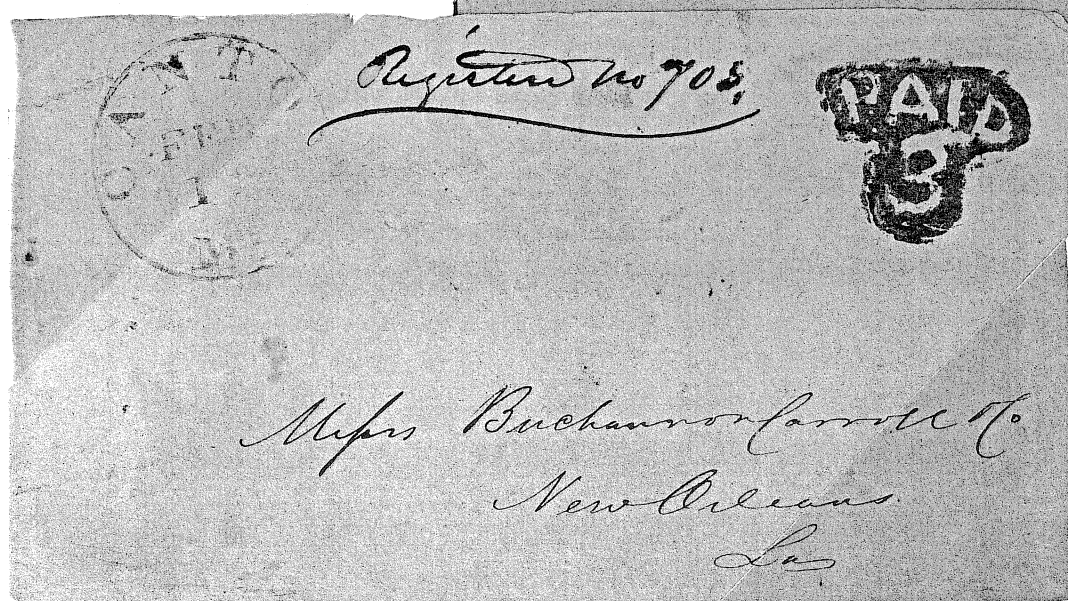 CANTON
FEB
1
Registered No 703,
PAID
3
Messrs Buchannon Carroll & Co
New Orleans
La